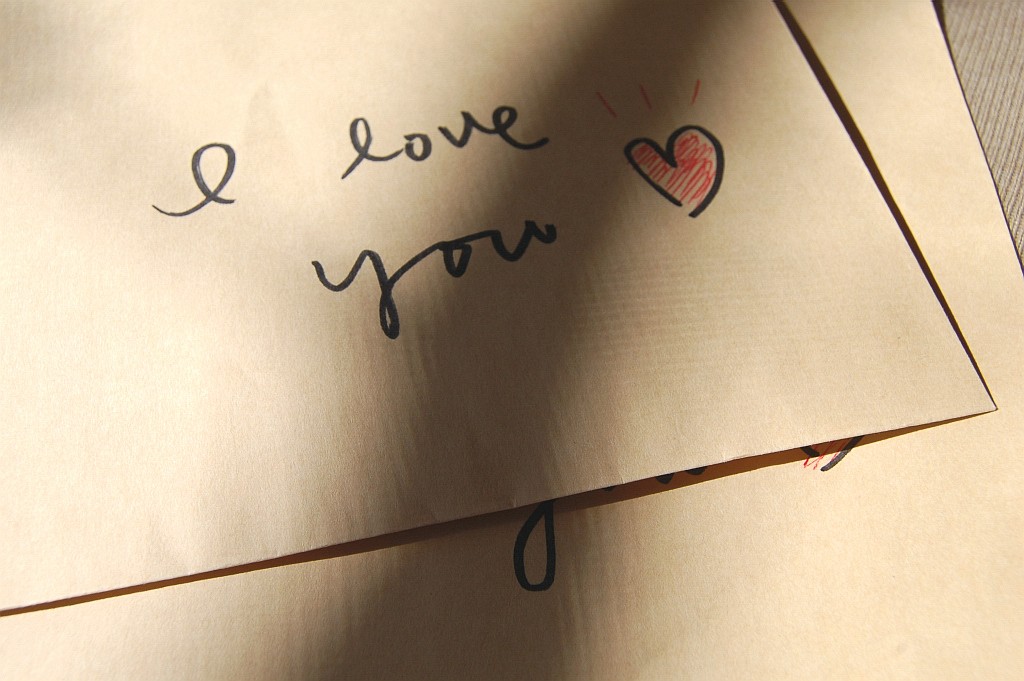 I love
you
y